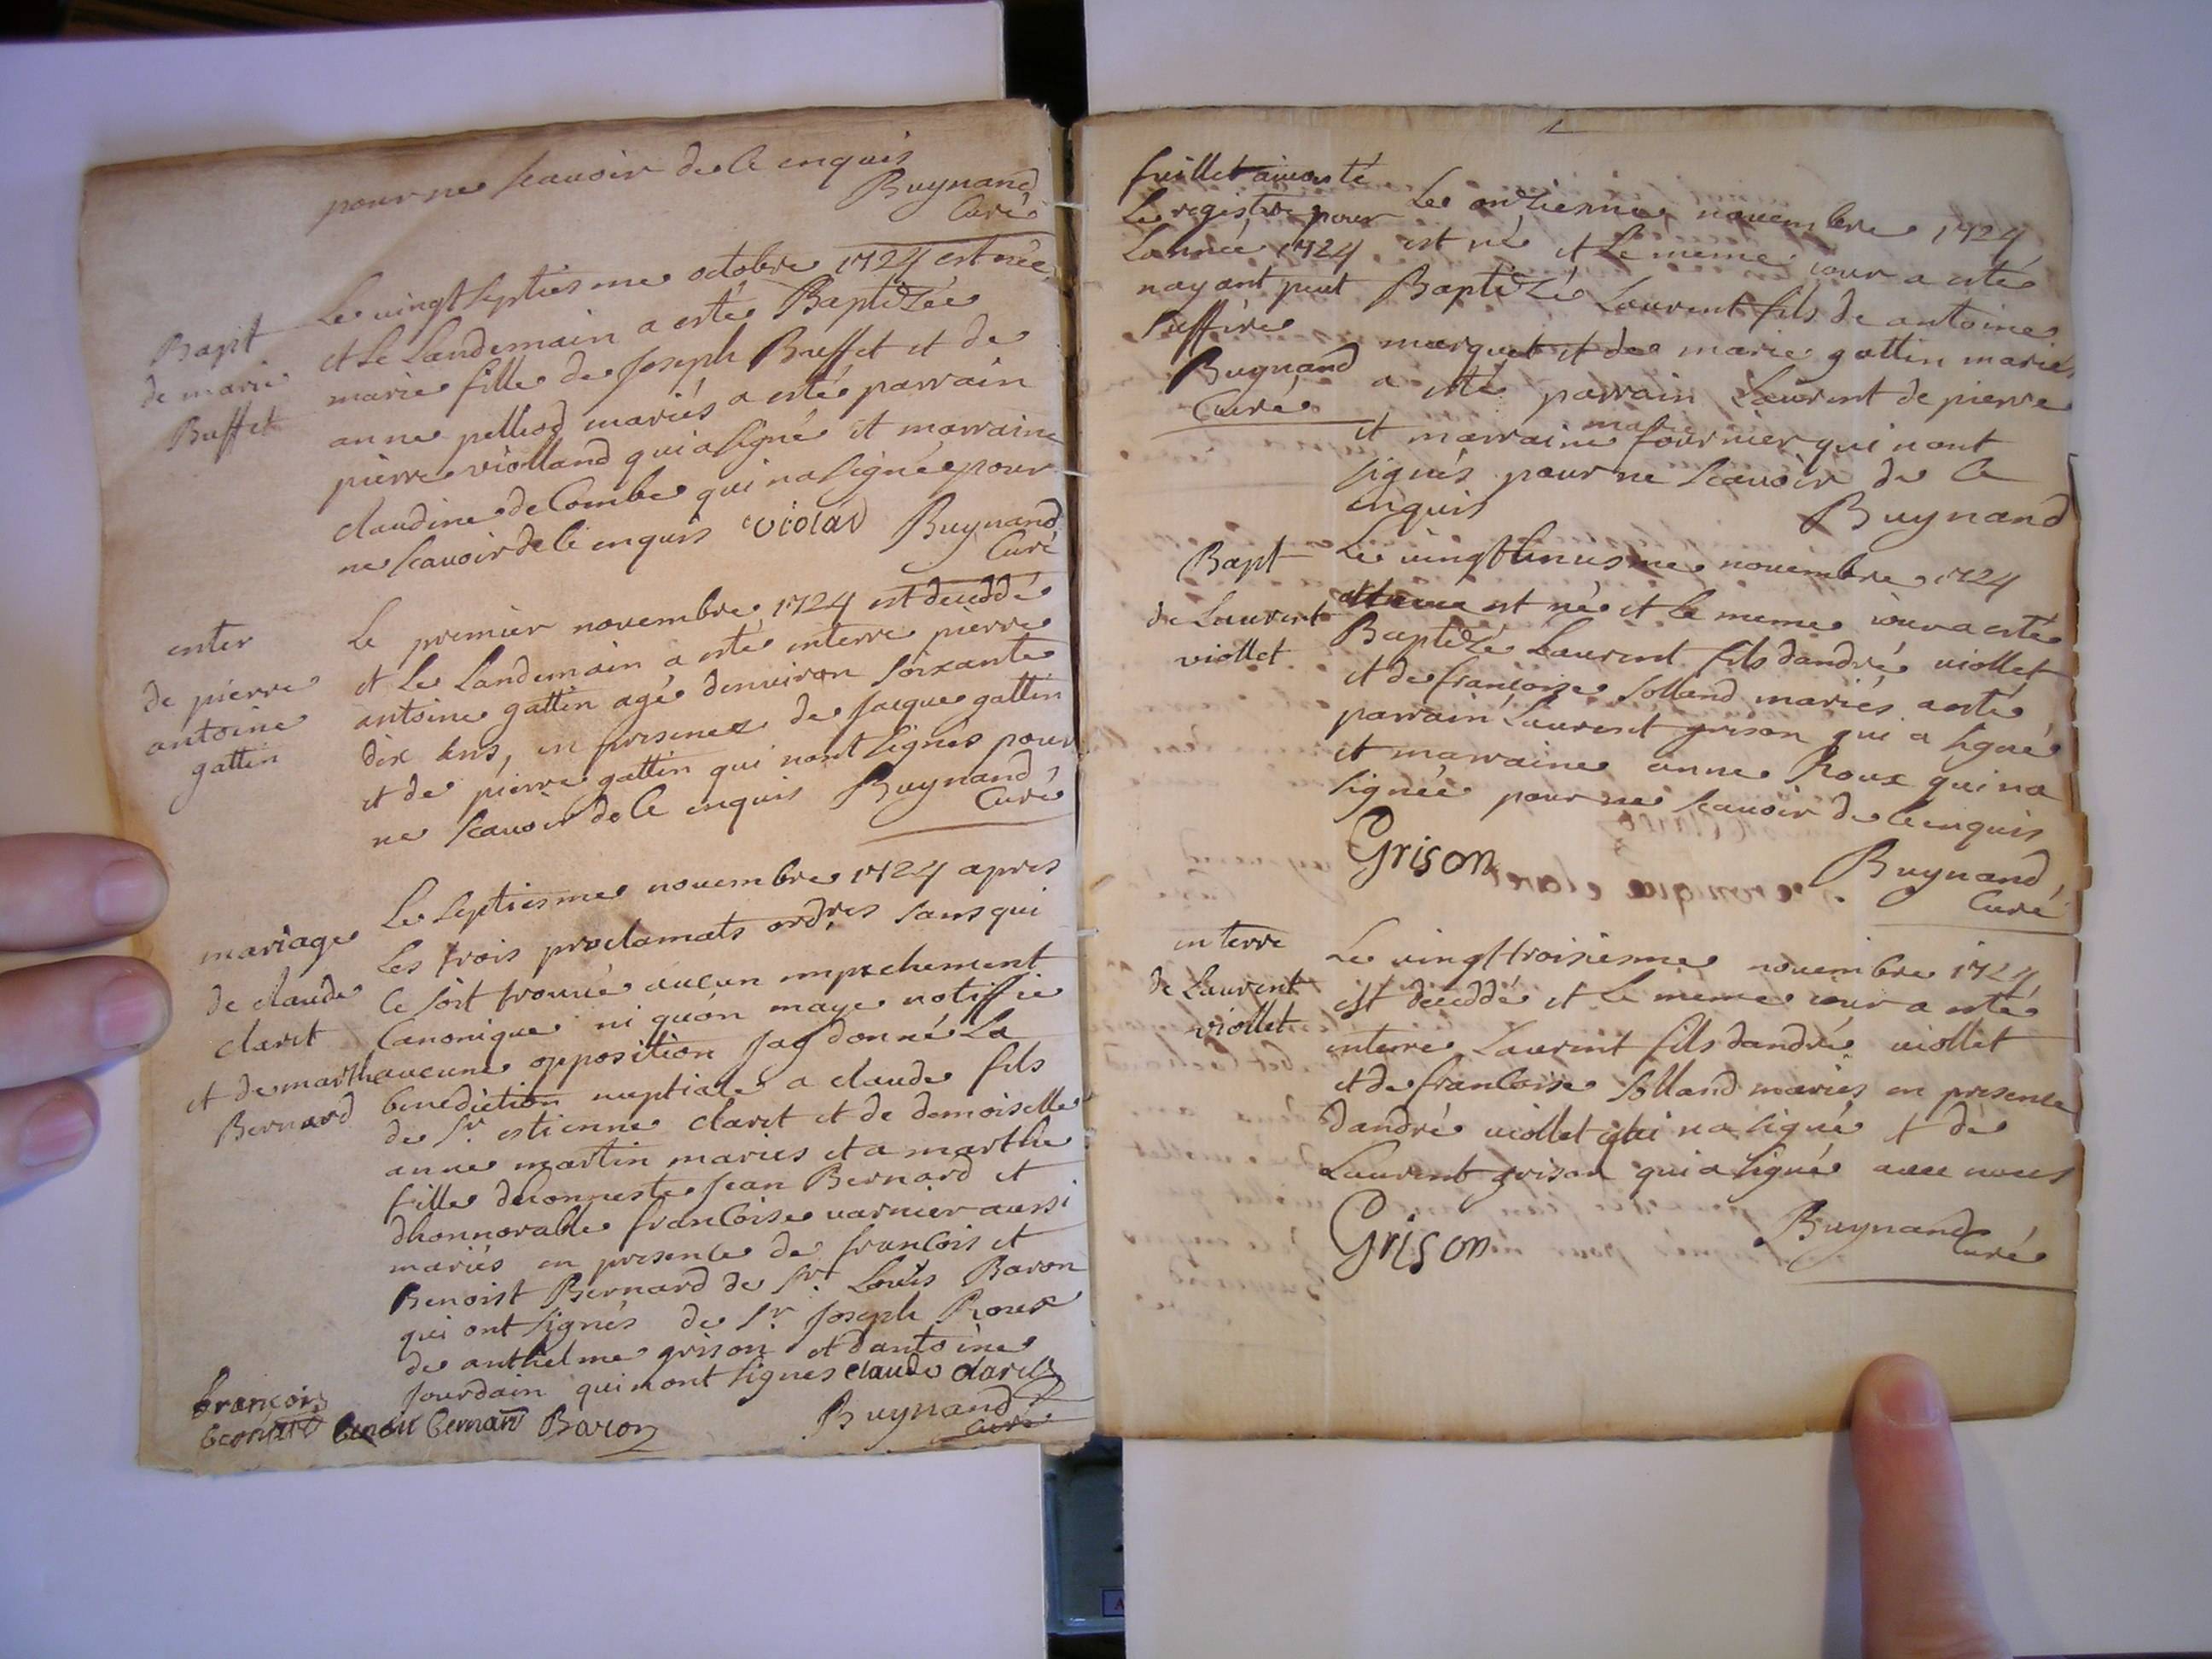 pour ne scauoir de ce enquis
Buynand
Curé
Bapt
de marie
Buffet
Le vingt septiesme octobre 1724 est née
et le Landemain a esté Baptizée
marie fille de Joseph Buffet et de
anne pelliod mariés a esté parrain
pierre violland qui a signé et marraine
claudine de Combe qui na signée pour
ne scauoir de ce enquis violad Buynand
Curé
enter
de pierre
antoine
gattin
Le premier novembre 1724 est deceddé
et le Landemain a esté interre pierre
antoine gattin agé denviron soixante
dix ans, en presence de Jacque gattin
et de pierre gattin qui nont signés pour
ne scauoir de ce enquis Buynand
Curé
mariage
de claude
claret
et de marthe
Bernard
Le septiesme novembre 1724 apres
Les trois proclamats ordres sans qui
ce soit trouué aucun impechement
Canonique ni quon maye notiffié
aucune opposition Jay donné La
benediction nuptiale a claude fils
de Sr. estienne claret et de demoiselle
anne martin mariés et a marthe
fille dhonneste Jean Bernard et
dhonnorable francoise varnier aussi
mariés en presence de francois et
Benoist Bernard de Sr. Louis Baron
qui ont signés de Sr. Joseph Roux
de anthelme grison et dantoine
Jourdain qui nont signes claude claret
françois
bernard benoit bernard Baron Buynand
Curé
2
fuillet aiousté
Le registre pour
Lannée 1724
nayant peut
suffire
Buynand
Curé
Le onziesme novembre 1724
est né et le meme iour a esté
Baptizé Laurent fils de antoine
marquet et de marie gattin mariés
a esté parrain Laurent de pierre
marie
et marraine fournier qui nont
signés pour ne scauoir de ce
enquis
Buynand
Bapt
de Laurent
viollet
Le vingt unusme novembre 1724
est né et le meme iour a esté
Baptizé Laurent fils dandré viollet
et de francoise solland mariés a esté
parrain Laurent grison qui a signé
et marraine anne Roux qui na
signée pour ne scauoir de ce enquis
Grison
Buynand
Curé
interre
de Laurent
viollet
Le vingt troisiesme novembre 1724
est deceddé et le meme iour a esté
interré Laurent fils dandré viollet
et de francoise solland mariés en presence
dandré viollet qui na signé et de
Laurent grison qui a signé avec nous
Grison
Buynand
Curé